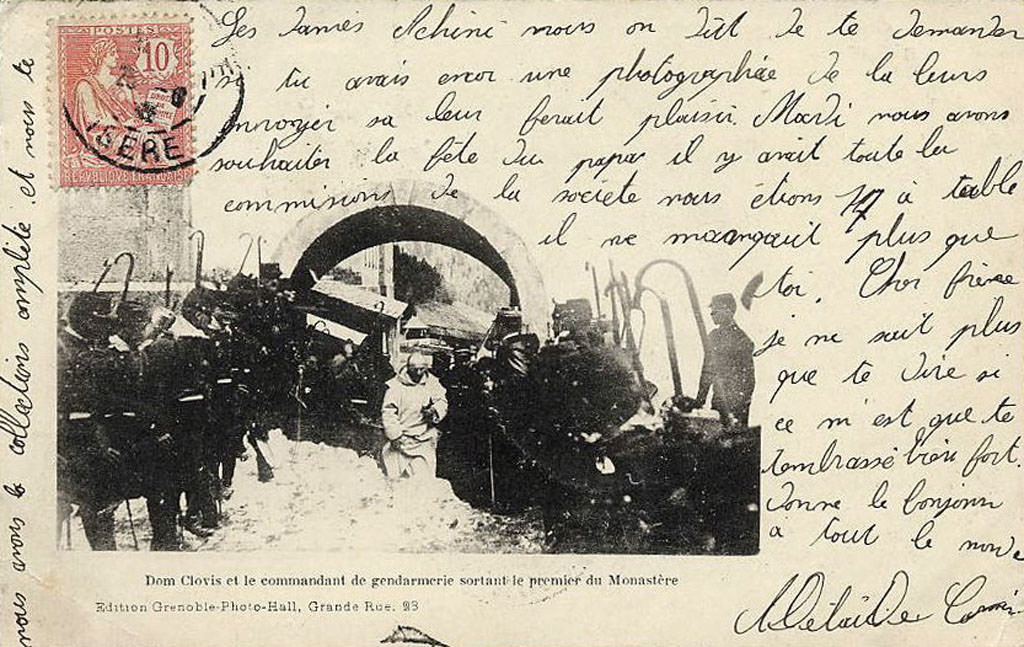 POSTES
10
ISERE
REPUBLIQUE FRANÇAISE
Les Dames Achini nous on Dit De te Demander
si tu avais encor une photographée De la leurs
envoyer sa leur ferait plaisir. Mardi nous avons
souhaiter la fête Du papa il y avait toute la
commisions De la societe nous étions 17 à table
il ne mangait plus que
toi. Cher frère
je ne sait plus
que te Dire si
ce m'est que te
t'embrasse bien fort.
Donne le bonjour
a tout le monde
Adelaïde
nous avons la collections amplète et nous te
Dom Clovis et le commandant de gendarmerie sortant le premier du Monastère
Edition Grenoble-Photo-Hall, Grande Rue, 23